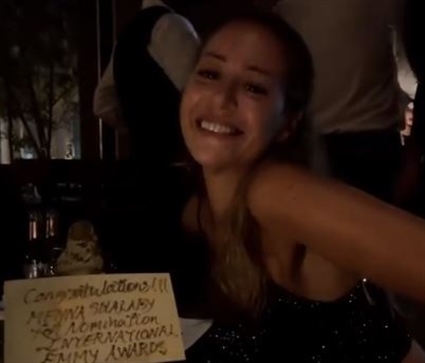 Congratulations!!!
MENNA SHALABY
Nomination
INTERNATIONAL
EMMY AWARDS